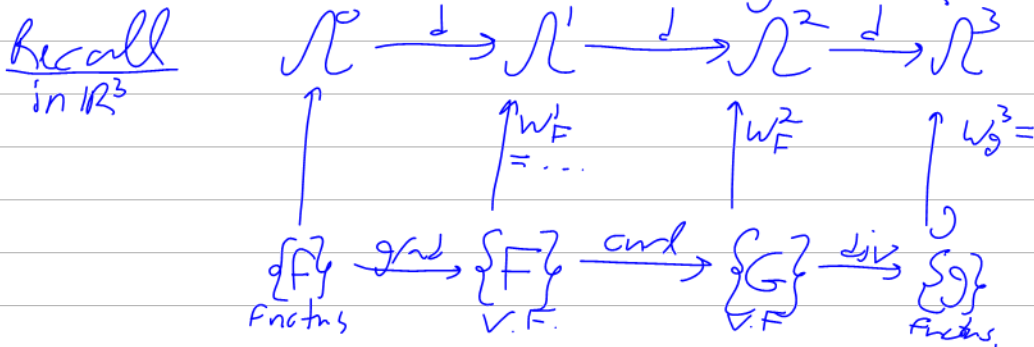 Recall
in IR³
Ω⁰ d Ω¹ d Ω² d Ω³
W¹F
= ...
W²F
W³g =
{F} grad {F} curl {G} div {g}
Fnctns V.F. V.F Fnctns.